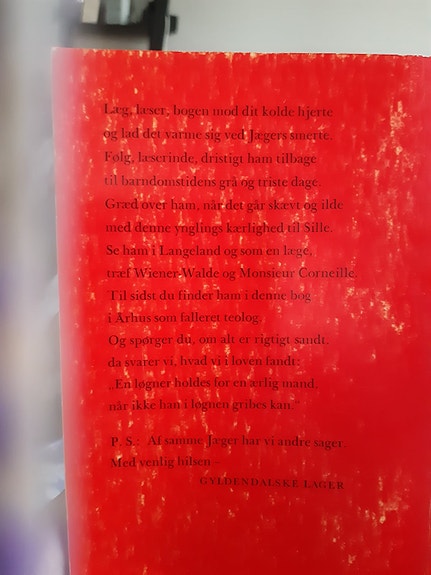 Læg, læser, bogen mod dit kolde hjerte
og lad det varme sig ved Jægers smerte.
Følg, læserinde, dristigt ham tilbage
til barndomstidens grå og triste dage.
Græd over ham, når det går skævt og ilde
med denne ynglings kærlighed til Sille.
Se ham i Langeland og som en læge,
træf Wiener-Walde og Monsieur Corneille.
Til sidst du finder ham i denne bog
i Århus som falleret teolog.
Og spørger du, om alt er rigtigt sandt,
da svarer vi, hvad vi i loven fandt:
„En løgner holdes for en ærlig mand,
når ikke han i løgnen gribes kan.”
P. S.: Af samme Jæger har vi andre sager.
Med venlig hilsen –
GYLDENDALSKE LAGER